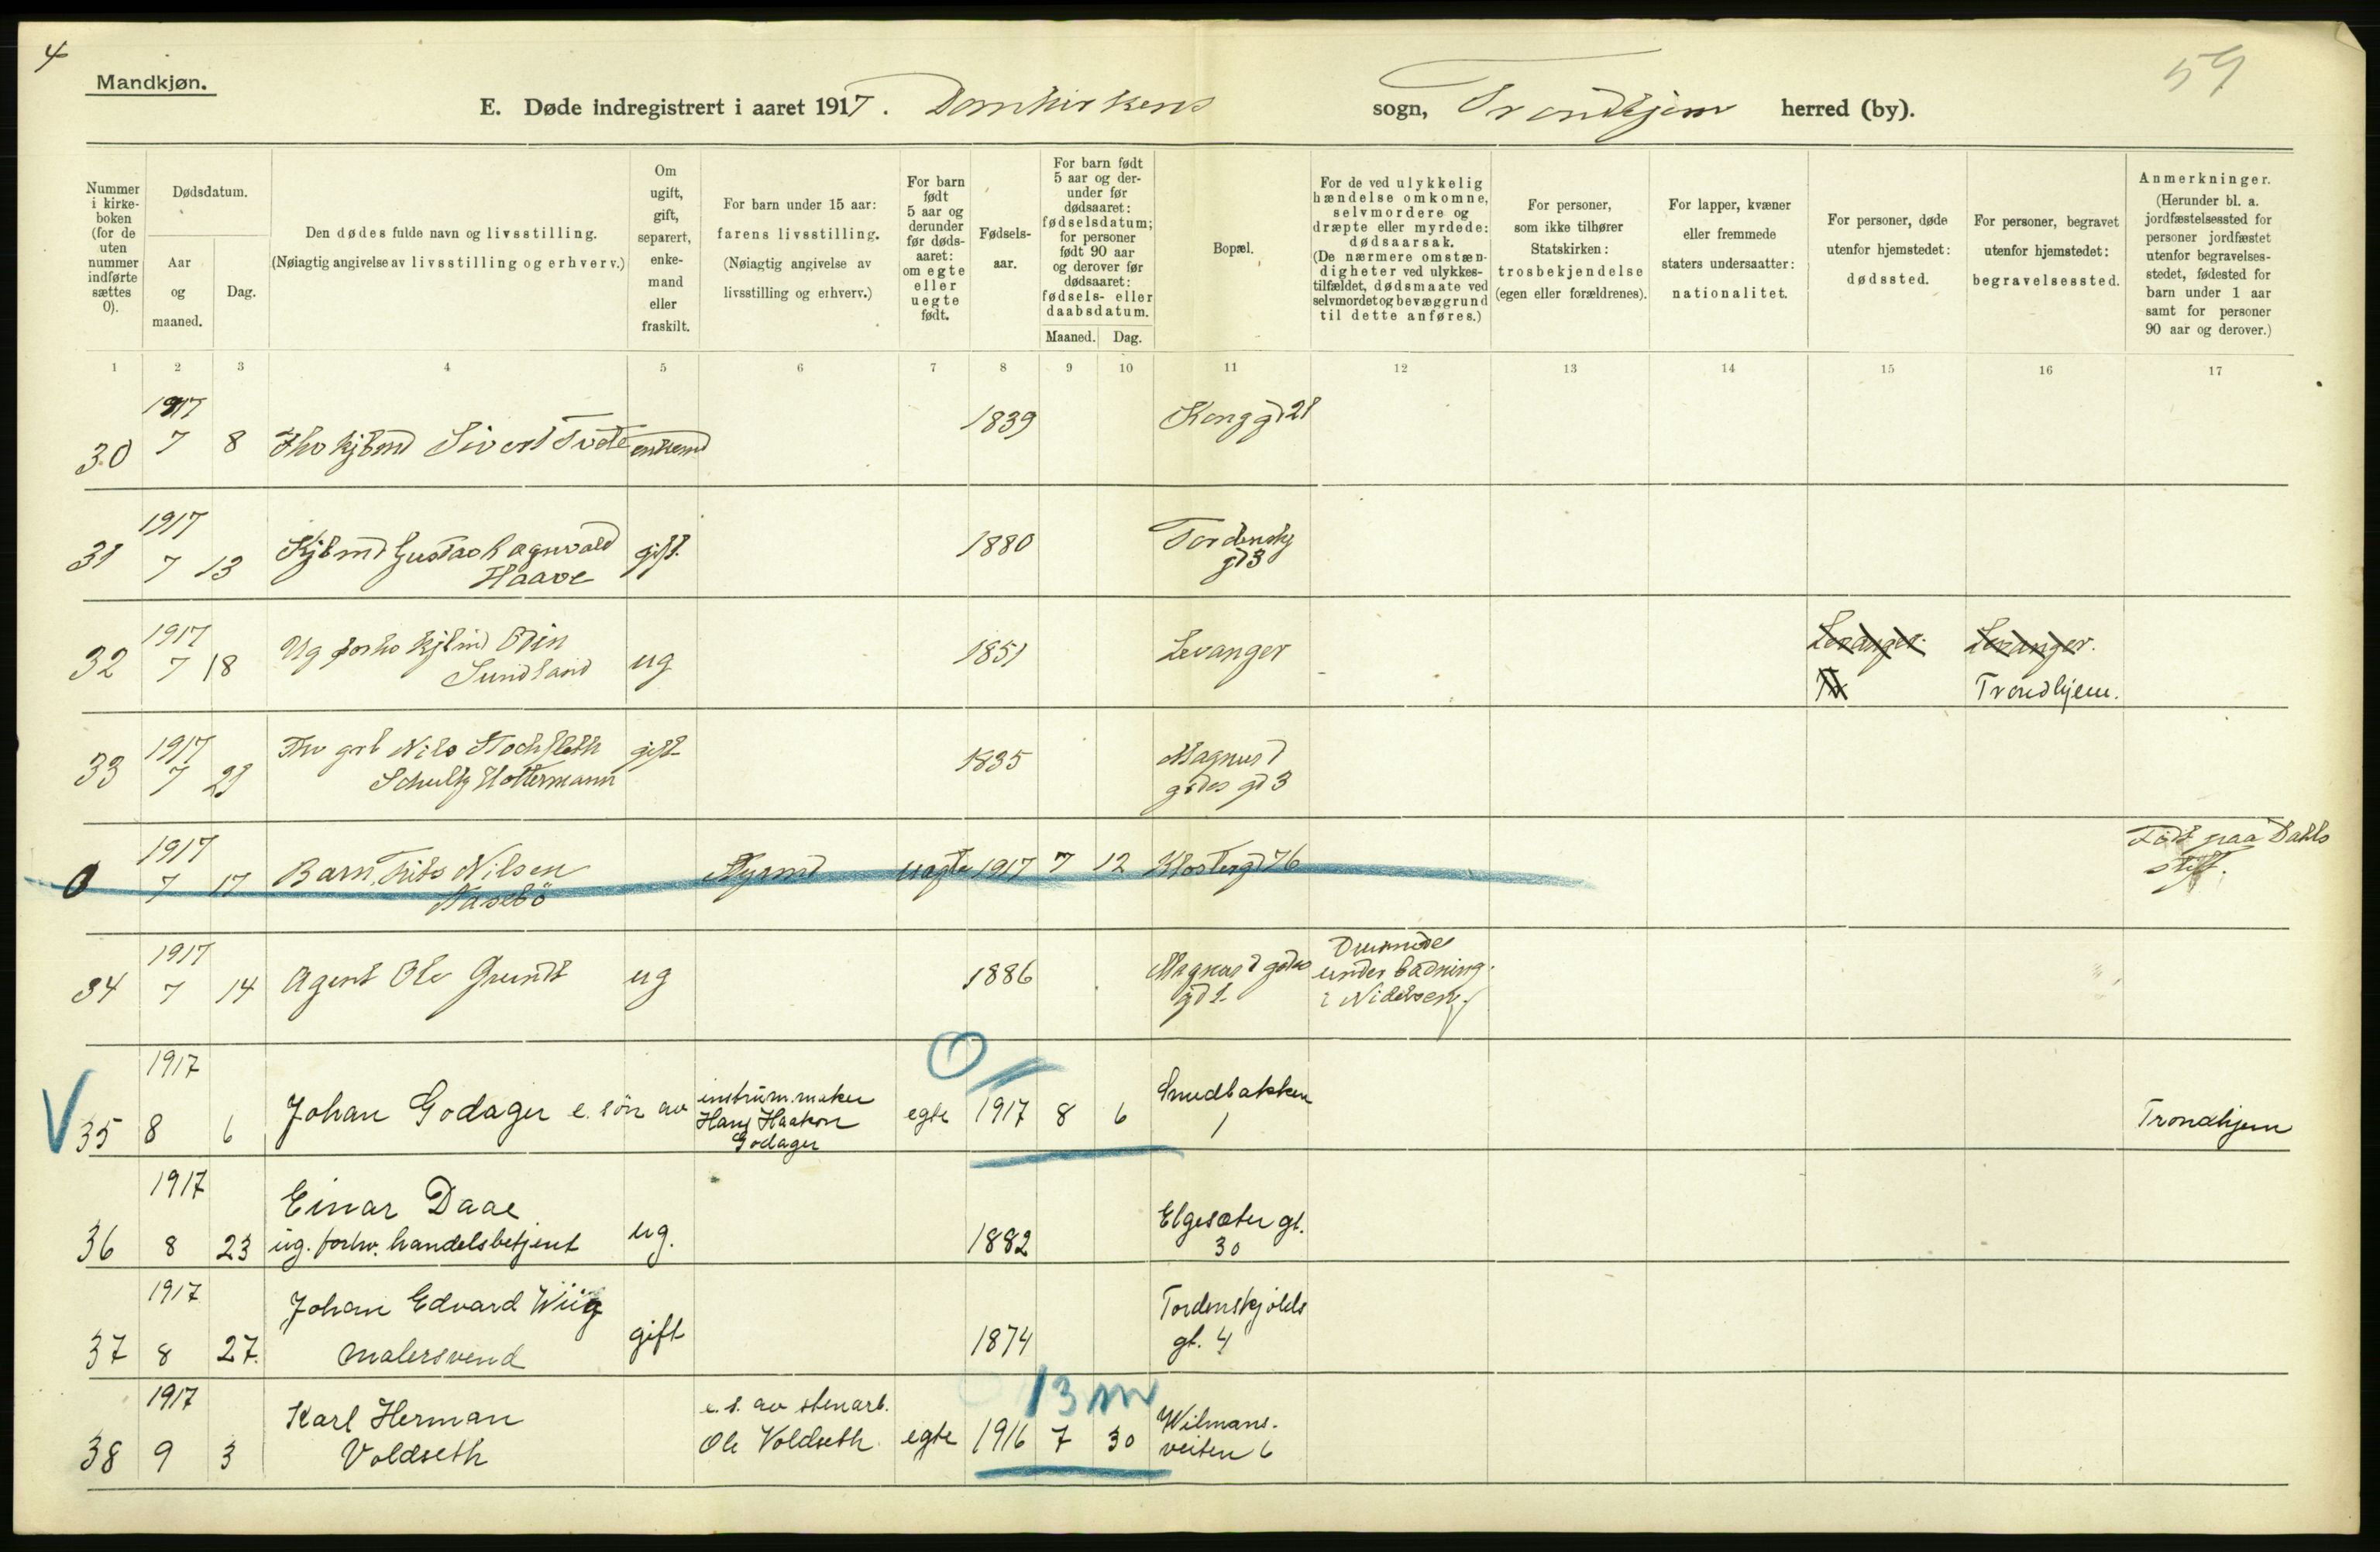 4
59
Mandkjøn.
E. Døde indregistrert i aaret 1917. Domkirkens sogn, Trondhjem herred (by).
Nummer i kirke-boken (for de uten nummer indførte sættes 0).
Dødsdatum.
Aar og maaned.
Dag.
Den dødes fulde navn og livsstilling.
(Nøiagtig angivelse av livsstilling og erhverv.)
Om ugift, gift, separert, enke-mand eller fraskilt.
For barn under 15 aar: farens livsstilling.
(Nøiagtig angivelse av livsstilling og erhverv.)
For barn født 5 aar og derunder før døds-aaret: om egte eller uegte født.
Fødsels-aar.
For barn født 5 aar og der-under før dødsaaret: fødselsdatum; for personer født 90 aar og derover før dødsaaret: fødsels- eller daabsdatum.
Maaned. Dag.
Bopæl.
For de ved ulykkelig hændelse omkomne, selvmordere og dræpte eller myrdede: dødsaarsak.
(De nærmere omstæn-digheter ved ulykkes-tilfældet, dødsmaate ved selvmordet og bevæggrund til dette anføres.)
For personer, som ikke tilhører Statskirken: trosbekjendelse (egen eller forældrenes).
For lapper, kvæner eller fremmede staters undersaatter: nationalitet.
For personer, døde utenfor hjemstedet: dødssted.
For personer, begravet utenfor hjemstedet: begravelsessted.
Anmerkninger.
(Herunder bl. a. jordfæstelsessted for personer jordfæstet utenfor begravelses-stedet, fødested for barn under 1 aar samt for personer 90 aar og derover.)
1 2 3 4 5 6 7 8 9 10 11 12 13 14 15 16 17
1917
30 7 8 Sivert Tvete enkemd 1839 Kongg d 21
1917
31 7 13 Kjbmd Gustav Ragnvald gift. 1880 Tordenskj
Haave gd 3
1917
32 7 18 Ug forhv kjbmd Odin ug 1851 Levanger Levanger. Levanger.
Sundland Tr Trondhjem.
1917
33 7 Nils Stochfleth gift 1835 Magnus d
Schultz Hottermann godes gd 3
1917
0 7 17 Barn, Nilsen uegte 1917 7 12 Klostergd 76 Født paa Dahls
stift.
1917
34 7 14 Agent Ole Grundt ug 1886 Magnus d godes Druknede
under badning
i Nidelven.
1917
35 8 6 Johan Godager e. søn av instrum.maker egte 1917 8 6 Smedbakken Trondhjem
Hans Haakon 1
Godager
1917
36 8 23 Einar Daae ug. 1882 Elgesæter gt.
ug. forhv. handelsbetjent 30
1917
37 8 27. Johan Edvard Wiig gift 1874 Tordenskjolds
malersvend gt. 4
1917 13 m
38 9 3 Karl Herman e. s. av stenarb. egte 1916 7 30 Wilmans.
Voldseth Ole Voldseth veiten 6